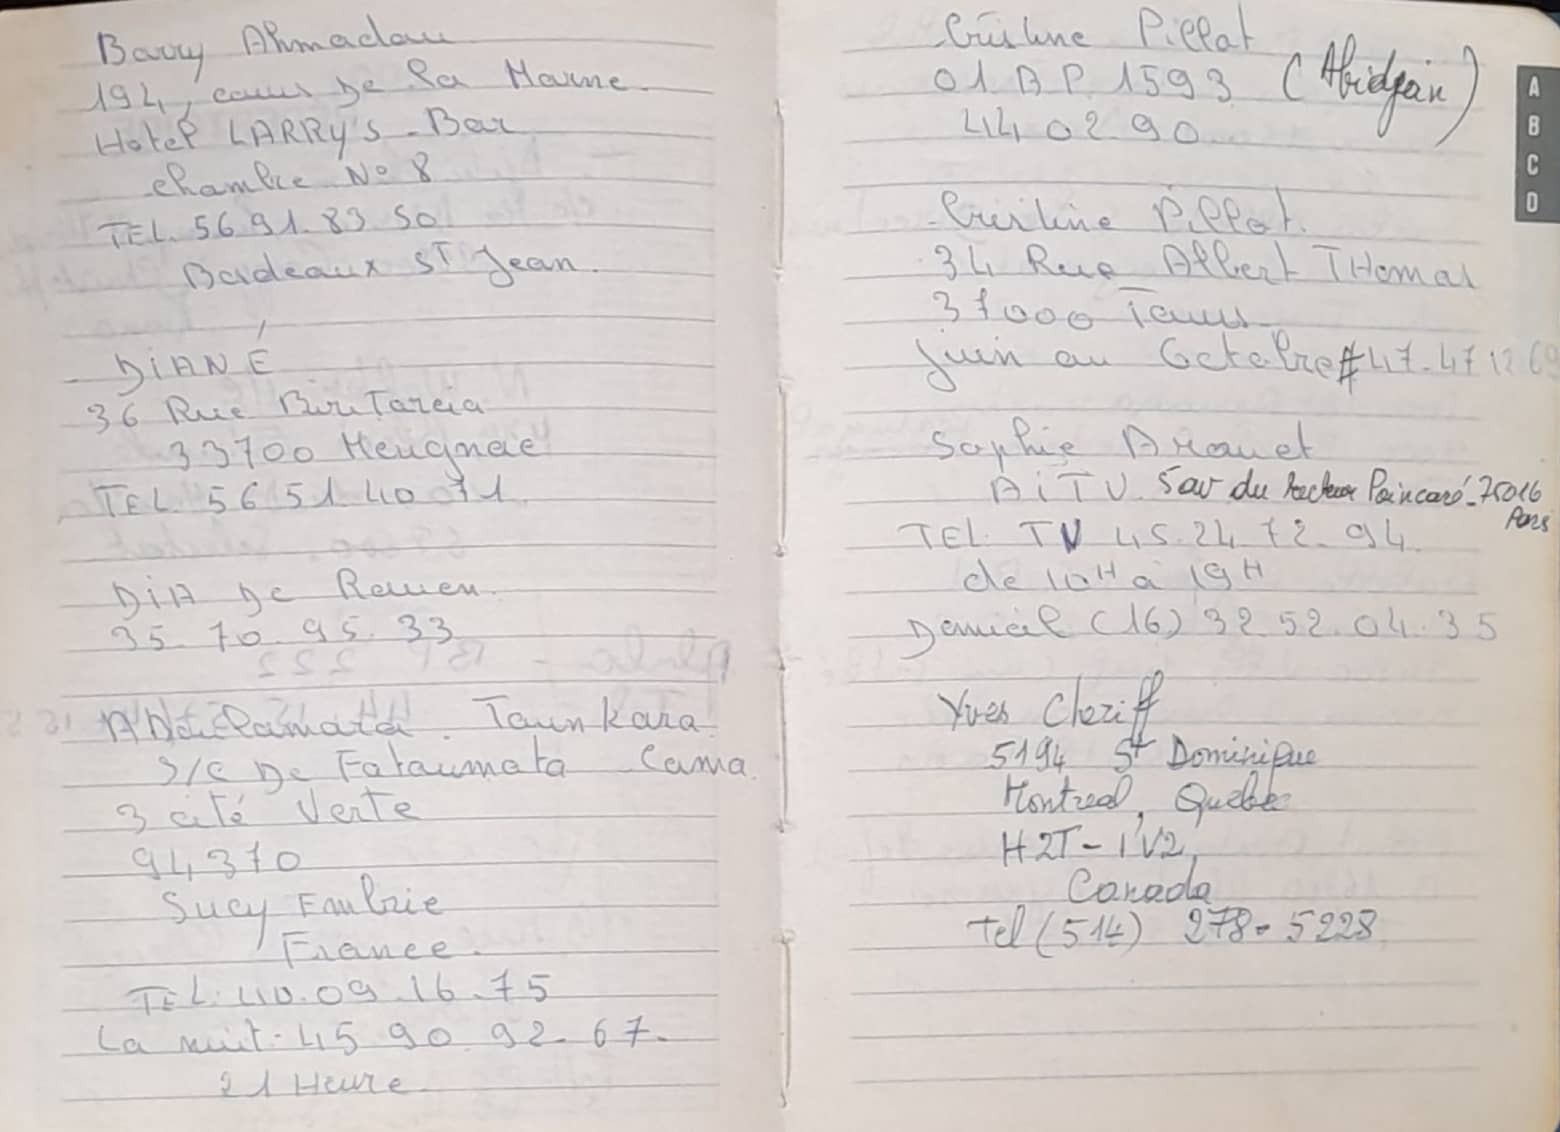 Barry Ahmadou
194, cours De la Marne.
Hotel LARRY's - Bar
chambre No 8
TEL. 56 91. 83 50
Bordeaux ST Jean.
DiANÉ
36 Rue
33700 Merignac
TEL. 56 51. 40 71
DiA De Rouen.
35. 70. 95. 33
Tounkara
S/C De Fatoumata Cama.
3 cité Verte
94370
Sucy Enbrie
France.
TEL: 40. 09. 16. 75
La nuit: 45 90 92. 67.
21 Heure
Cristine Pillot
01 BP 1593 (Abidjan)
44 02 90
Cristine Pillot.
34 Rue Albert THomas
37000 Tours
Juin au Octobre # 47. 47 12 69
Sophie Arouet
AiTV. 5 av du recteur Poincaré - 75016
Paris
TEL. TV 45. 24 72. 94.
de 10H à 19H
Daniel (16) 32 52. 04. 35
Yves Cheriff
5194 St Dominique
Montreal, Quebec
H2T - 1V2,
Canada
tel (514) 278- 5228
A
B
C
D